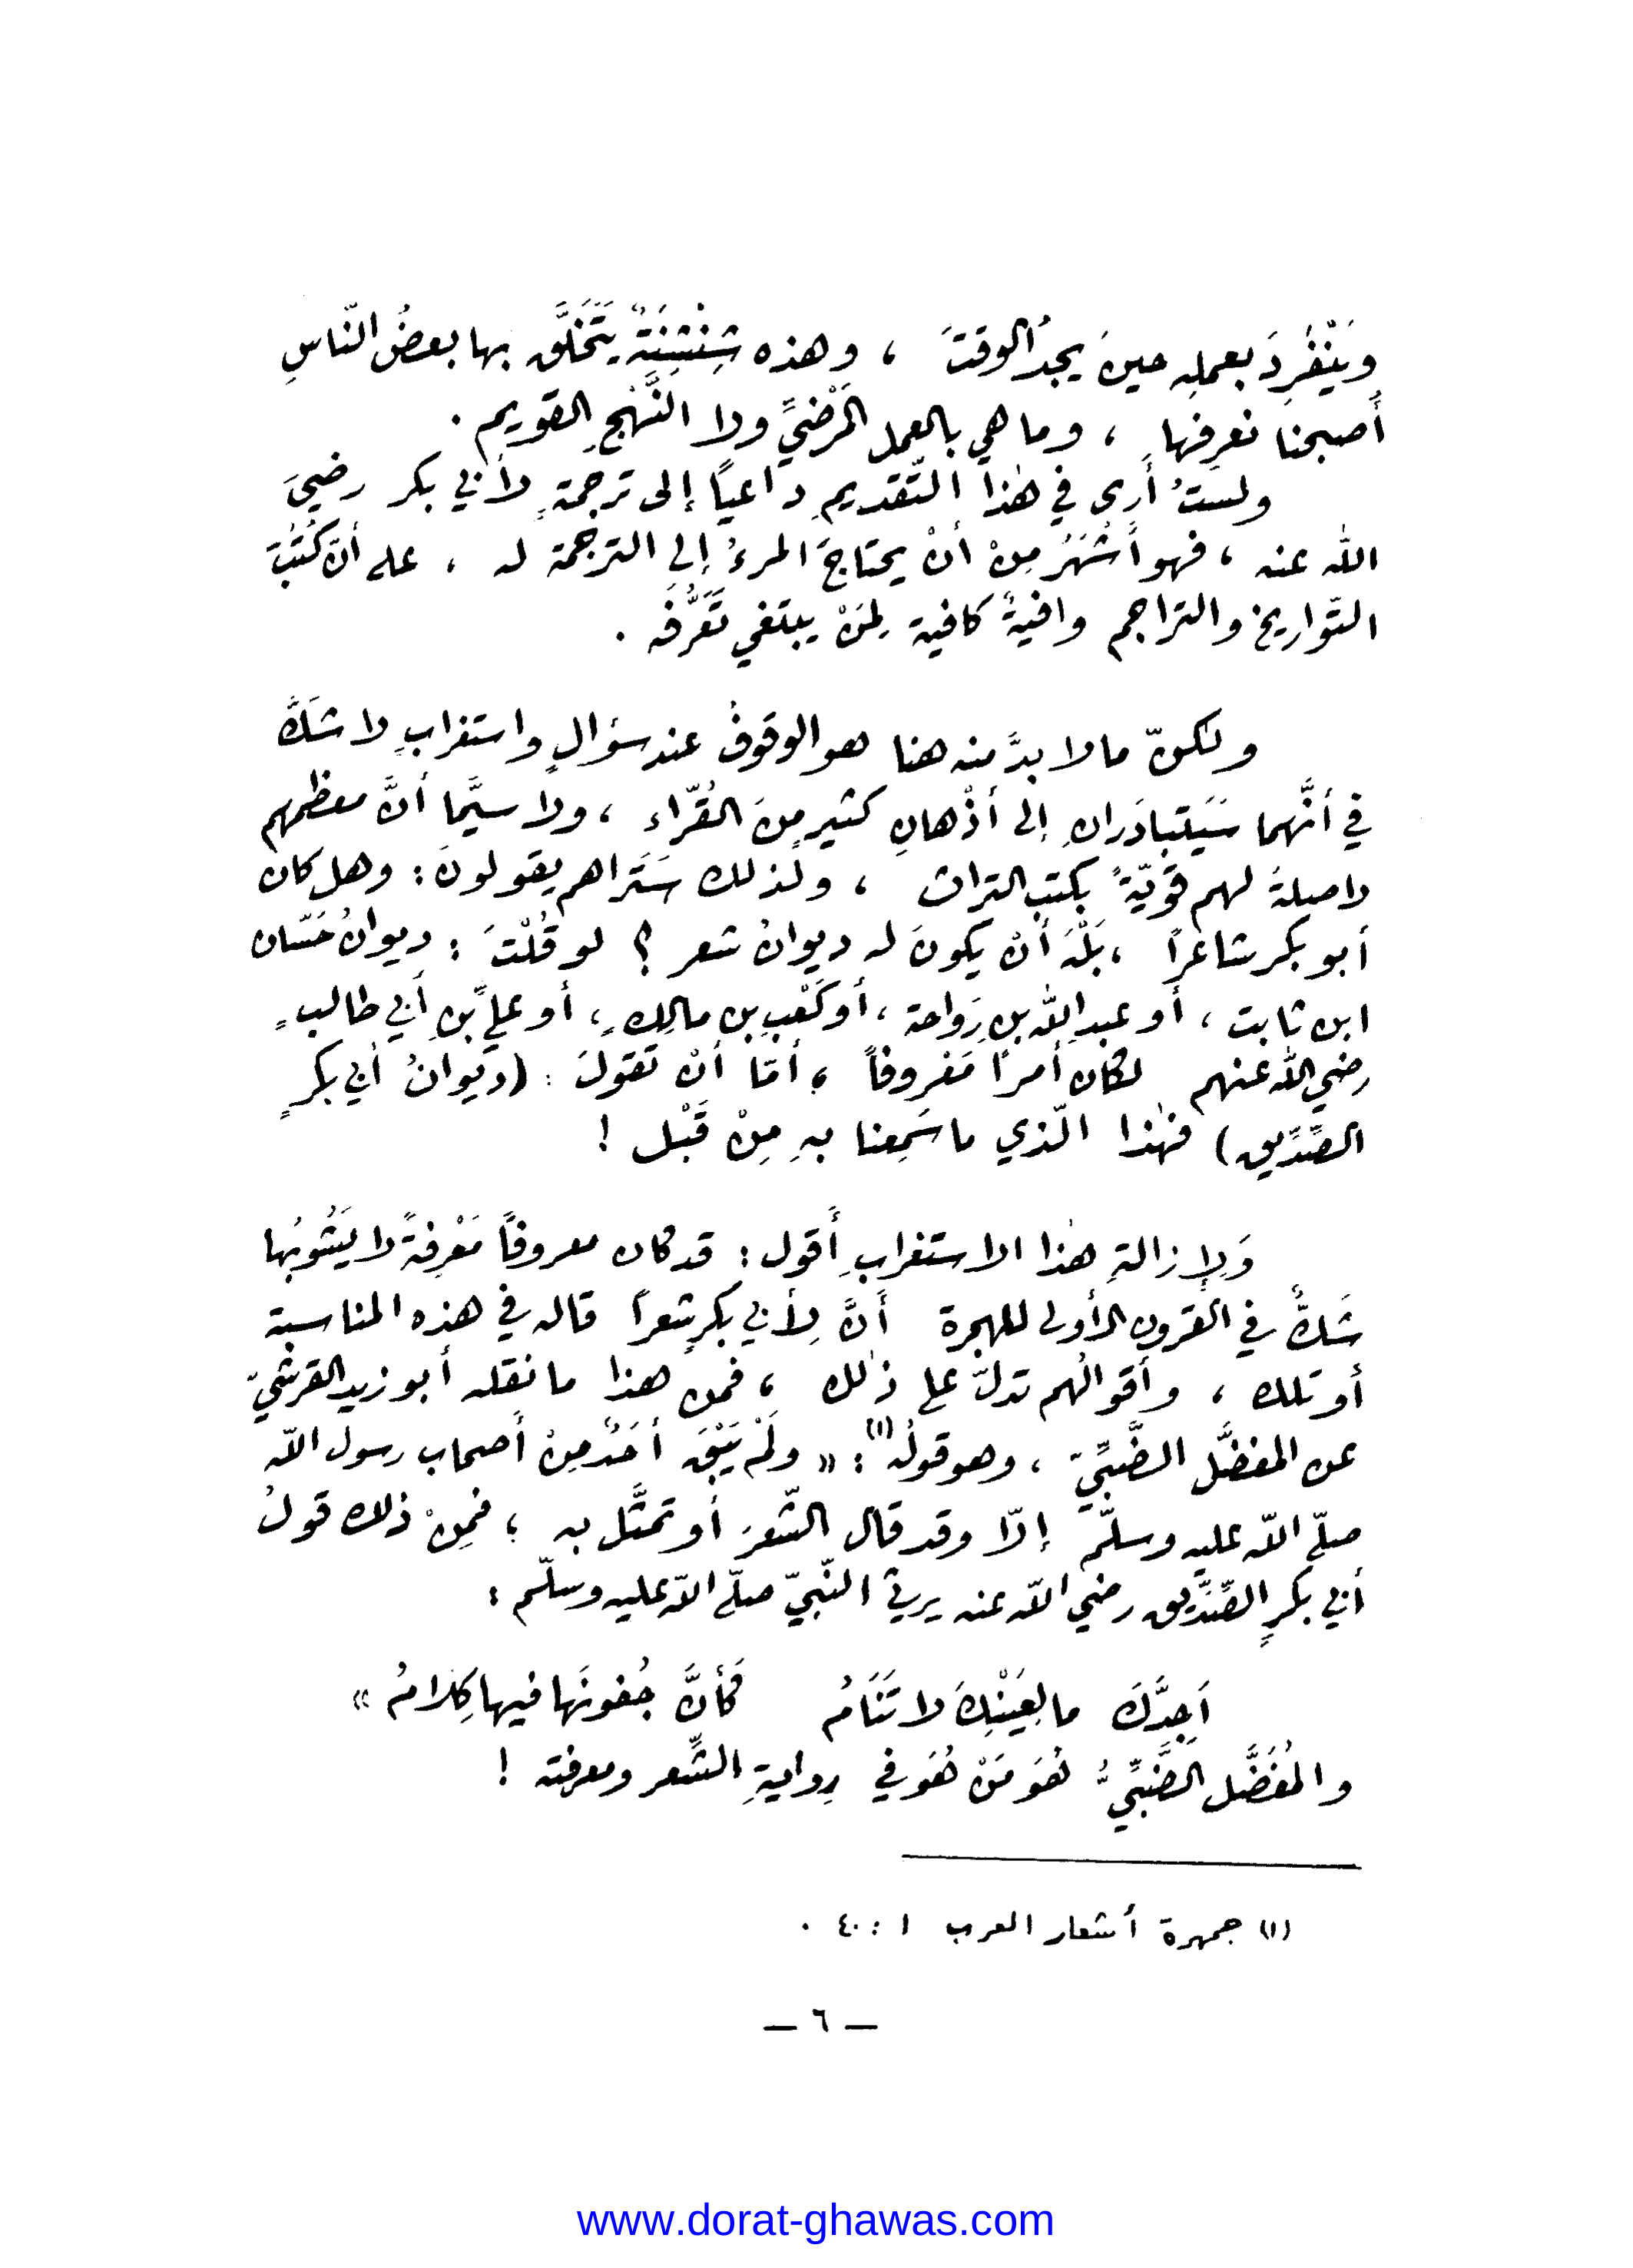 وَيَنْفَرِدَ بعملِه حينَ يجدُ الوقتَ ، وهذه شِنْشِنَةٌ يَتَخَلَّق بها بعضُ النّاسِ
أصبحنا نعرِفها ، وما هي بالعملِ المَرْضيِّ ولا النَّهْجِ القويم .
ولستُ أرى في هٰذا التّقديمِ داعياً إلى ترجمةٍ لأبي بكر رضيَ
الله عنه ، فهو أشهَرُ مِنْ أنْ يحتاجَ المرءُ إلى الترجمة له ، على أنّ كُتُبَ
التّواريخ والتراجم وافيةٌ كافية لِمَنْ يبتغي تَعَرُّفَه .
ولكنّ ما لا بدَّ منه هنا هو الوقوفُ عند سؤالٍ واستغرابٍ لا شَكَّ
في أنَّهما سَيَتبادَرانِ إلى أذْهانِ كثيرٍ منَ القُرّاء ، ولا سيَّما أنَّ معظمهم
لا صلةَ لهم قويّةً بكتب التراث ، ولذلك سَتَراهم يقولونَ : وهل كان
أبو بكر شاعراً ، بَلْهَ أنْ يكونَ له ديوانُ شعر ؟ لو قُلْتَ : ديوانُ حَسّان
ابن ثابت ، أو عبدِ اللّٰه بنِ رَواحة ، أو كَعْبِ بن مالِكٍ ، أو عليِّ بنِ أبي طالبٍ
رضي اللّٰه عنهم لكان أمراً مَعْروفاً ، أمّا أنْ تقولَ : (ديوانُ أبي بكرٍ
الصِّدِّيق) فهٰذا الّذي ما سَمِعنا بهِ مِنْ قَبْل !
وَلإِزالةِ هٰذا الاستغرابِ أقول : قد كان معروفاً مَعْرِفةً لا يَشُوبُها
شَكٌّ في القرون الأولى للهجرة أنَّ لِأبي بكرٍ شعراً قاله في هذه المناسبة
أو تلك ، وأقوالُهم تدلّ على ذٰلك ، فمن هذا ما نقله أبو زيد القرشيّ
عن المفضَّل الضَّبِّيّ ، وهو قولُه (١) : « ولَمْ يَبْقَ أحَدٌ مِنْ أصحاب رسول اللّه
صلّى اللّه عليه وسلّم إلّا وقد قال الشّعرَ أو تمثَّل به ؛ فمِنْ ذلك قولُ
أبي بكرٍ الصِّدِّيق رضي اللّه عنه يرثي النّبيّ صلّى اللّه عليه وسلّم :
أَجِدَّكَ ما لِعَيْنِكَ لا تَنَامُ كَأنَّ جُفونَها فيها كِلامُ »
والمُفَضَّل الضَّبِّيُّ هُوَ مَنْ هُوَ في رِوايةِ الشِّعر ومعرفته !
(١) جمهرة أشعار العرب ١ : ٤٠ .
— ٦ —
www.dorat-ghawas.com